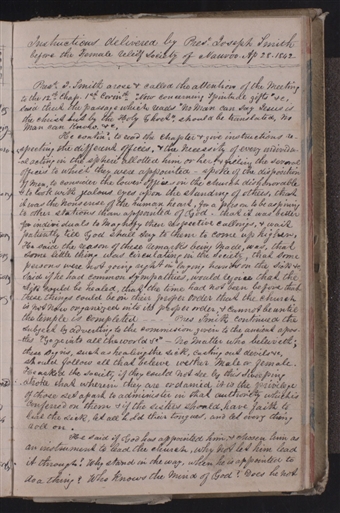 Instructions delivered by Pres. Joseph Smith
before the Female Relief Society of Nauvoo. Ap 28. 1842
Pres. J. Smith arose & called the attention of the Meeting
to the 12th Chap. 1st Corinth. Now concerning Spiritual gifts &c.
Said that the passage which reads no Man can say Jesus is
the Christ but by the Holy Ghost, should be translated, No
man can know. &c,
He contin. to read the Chapter & give instructions re-
specting the different offices, & the necessity of every individu-
al acting in the sphere allotted him or her & filling the several
offices to which they were appointed - spoke of the disposition
of men to consider the lower offices in the church dishonorable
& to look with jealous eyes upon the standing of others, that
it was the nonsense of the human heart, for a person to be aspiring
to other stations than appointed of God - that it was better
for individuals to magnify their respective callings, & wait
patiently till God shall say to them to come up higher.
He said the reason of these remarks being made, was, that
some little thing was circulating in the Society, that some
persons were not going right in laying hands on the sick &c
Said if he had common sympathies, would rejoice that the
sick could be healed, that the time had not been before that
these things could be in their proper order that the church
is not now organized in its proper order & cannot be until
the temple is completed. Pres. Smith continued the
subject by adverting to the commission given to the ancient apos-
tles "Go ye into all the world &c" - No matter who believeth;
these signs, such as healing the sick, casting out devils &c,
should follow all that believe whether Male or female.
He asked the Society if they could not see by this sweeping
stroke that wherein they are ordained, it is the privilege
of those set apart to administer in that authority which is
conferred on them & if the sisters should have faith to
heal the sick, let all hold their tongues, and let every thing
roll on.
He said if God has appointed him, & chosen him as
an instrument to lead the church, why not let him lead
it through? Why stand in the way, when he is appointed to
do a thing? Who knows the mind of God? Does he not